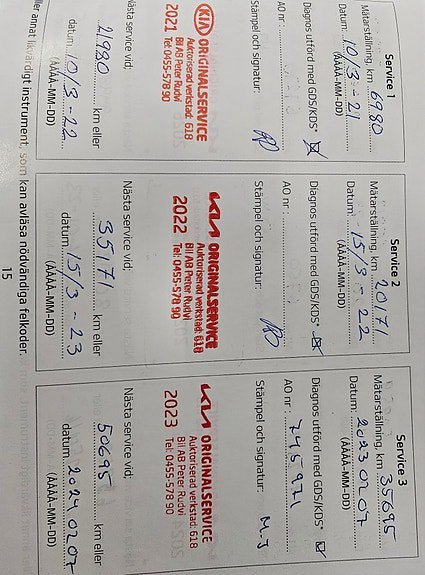 Service 1
Mätarställning, km 6980
Datum: 10/3-21
(ÅÅÅÅ-MM-DD)
Diagnos utförd med GDS/KDS*
AO nr:
Stämpel och signatur:
KIA ORIGINALSERVICE
Auktoriserad verkstad: 618
Bil AB Peter Rudvi
2021 Tel: 0455-578 90
Nästa service vid:
21980 km eller
datum: 10/3-22
(ÅÅÅÅ-MM-DD)
Service 2
Mätarställning, km 20171
Datum: 15/3-22
(ÅÅÅÅ-MM-DD)
Diagnos utförd med GDS/KDS*
AO nr:
Stämpel och signatur:
KIA ORIGINALSERVICE
Auktoriserad verkstad: 618
Bil AB Peter Rudvi
2022 Tel: 0455-578 90
Nästa service vid:
35171 km eller
datum: 15/3-23
(ÅÅÅÅ-MM-DD)
Service 3
Mätarställning, km 35695
Datum: 20230207
(ÅÅÅÅ-MM-DD)
Diagnos utförd med GDS/KDS*
AO nr: 745971
Stämpel och signatur:
M.J
KIA ORIGINALSERVICE
Auktoriserad verkstad: 618
Bil AB Peter Rudvi
2023 Tel: 0455-578 90
Nästa service vid:
50695 km eller
datum: 20240207
(ÅÅÅÅ-MM-DD)
eller annat likvärdigt instrument, som kan avläsa nödvändiga felkoder.
15